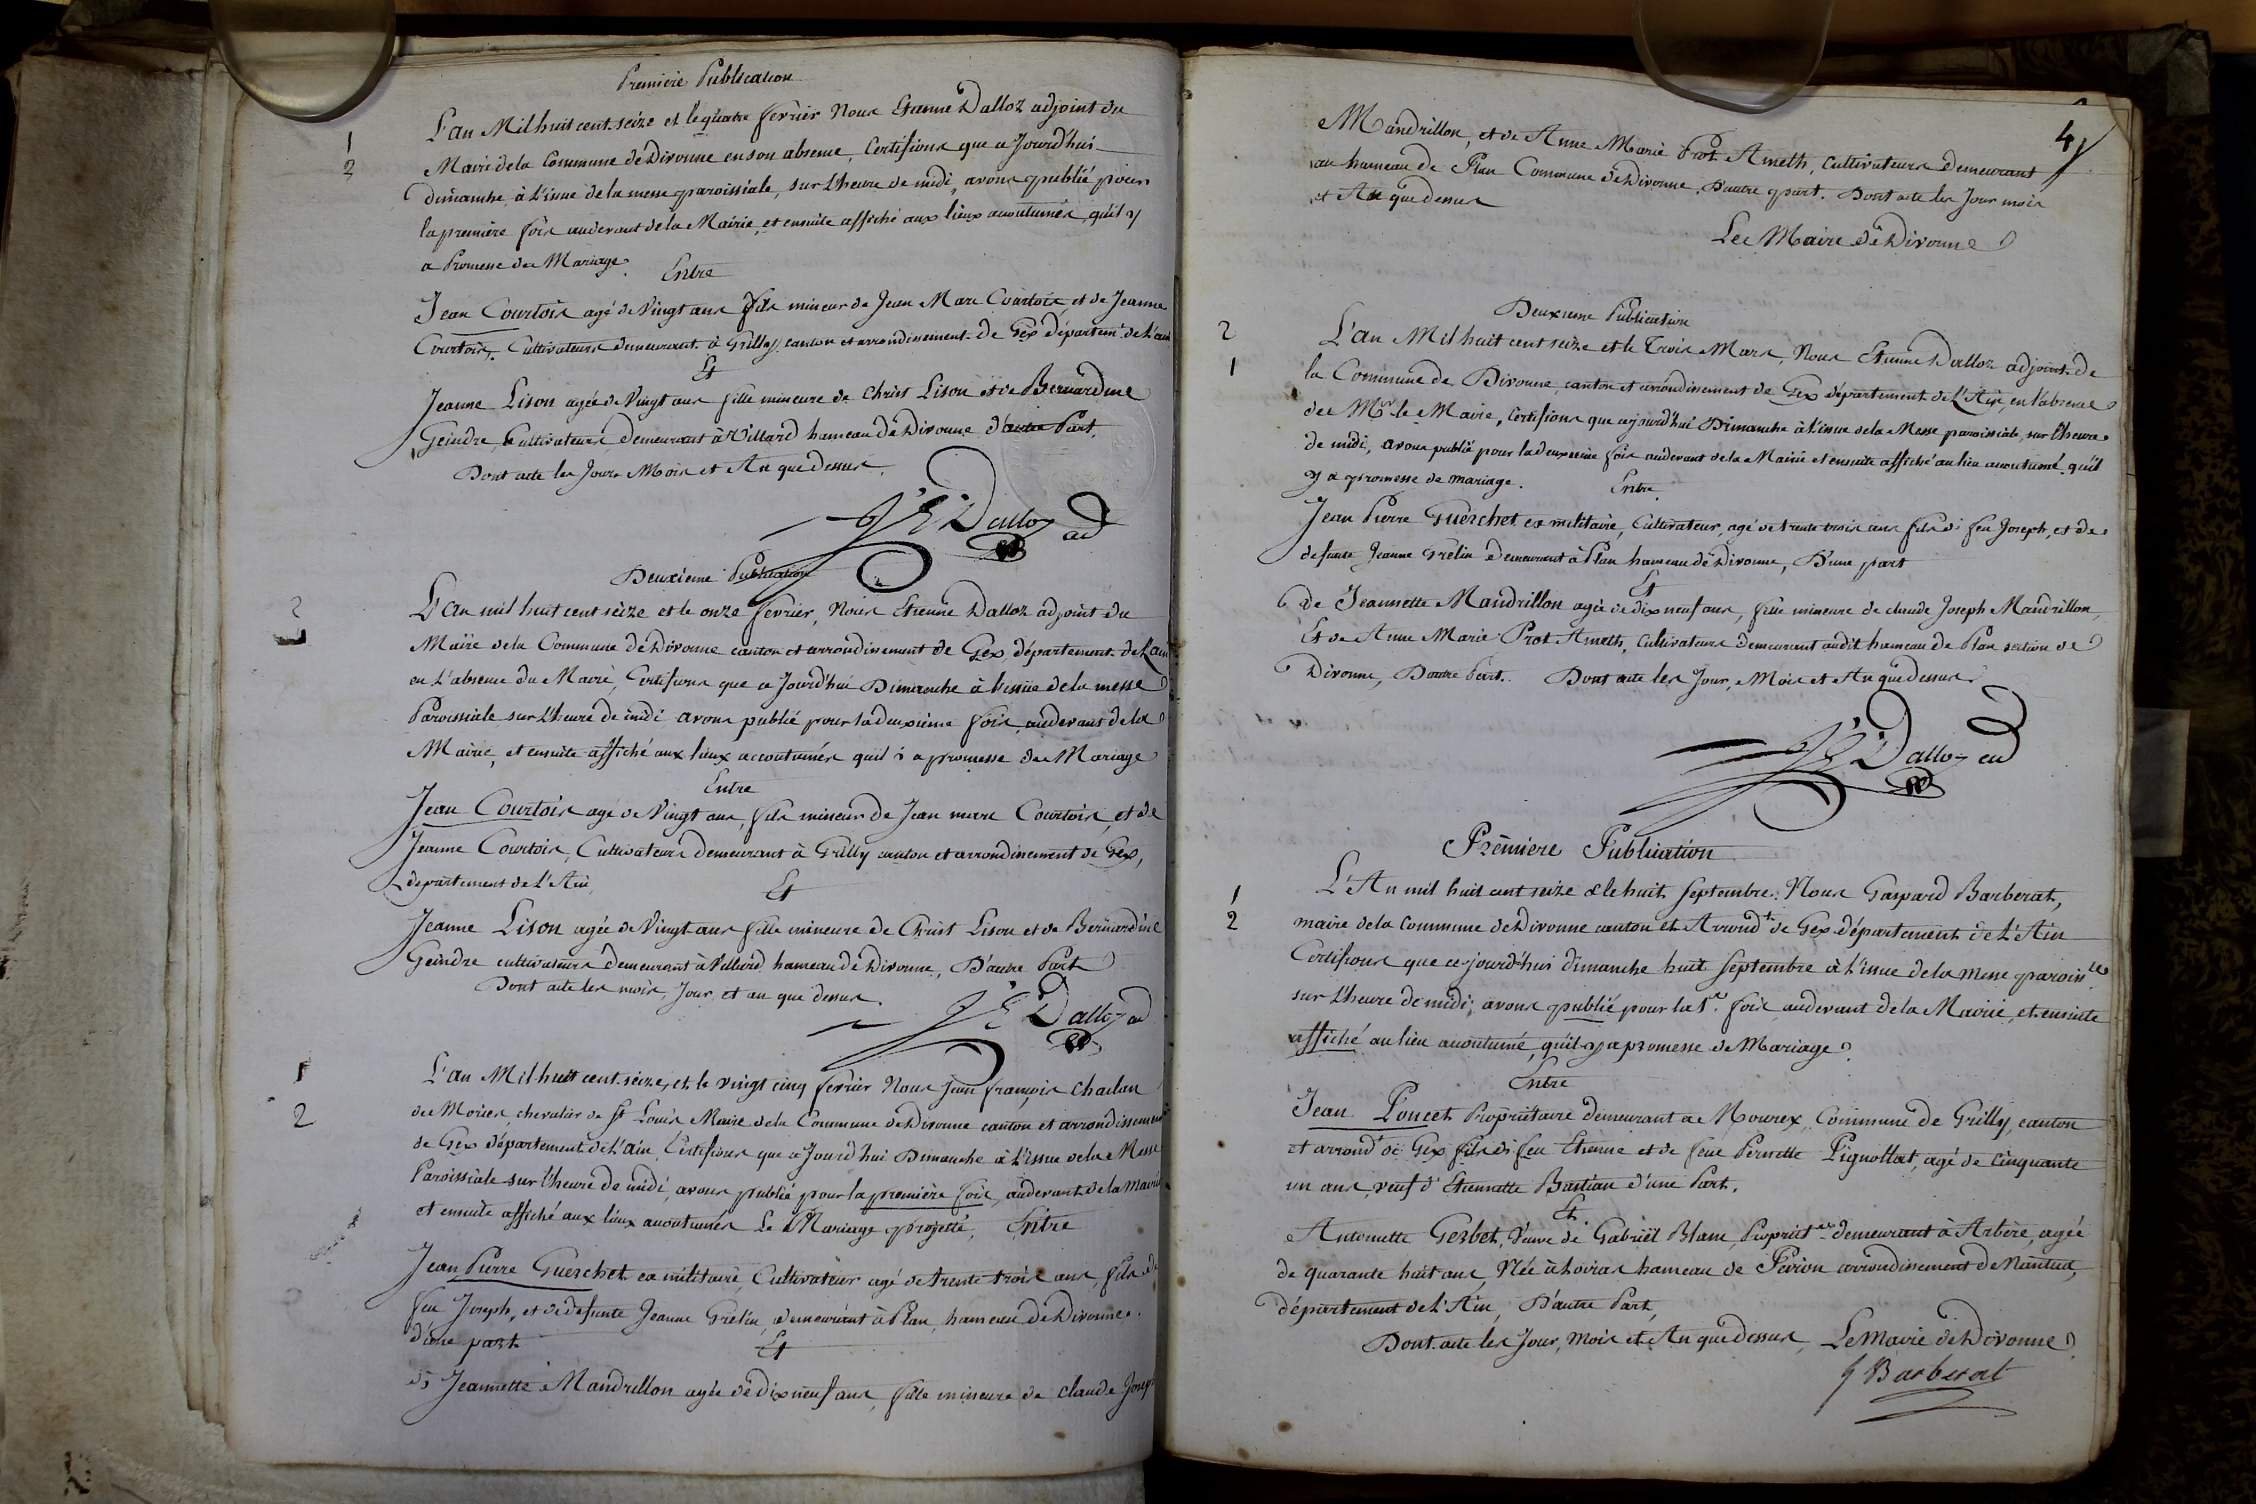 Premiere Publication
1
2
L'an Mil huit cent seize et le quatre fevrier Nous Etienne Dalloz adjoint du
Maire de la Commune de Divonne en son absence, Certifions que ce Jourd'hui
dimanche, à l'issue de la messe paroissiale, sur l'heure de midi, avons publié pour
la premiere fois audevant de la Mairie, et ensuite affiché aux lieux acoutumés, qu'il y
a Promesse de Mariage.
Entre
Jean Courtois agé de Vingt ans fils mineur de Jean Marc Courtois, et de Jeanne
Courtois, Cultivateurs demeurant à Grilly canton et arrondissement de Gex départemt de L'ain
Et
Jeanne Lison agée de Vingt ans fille mineure de Christ Lison et de Bernardine
Geindre, Cultivateurs, demeurant à Villard hameau de Divonne d'autre Part.
Dont acte les Jours Mois et An que dessus.
J E Dalloz ad
Deuxieme Publication
2
L'an mil huit cent seize et le onze fevrier, Nous Etienne Dalloz adjoint du
Maire de la Commune de Divonne canton et arrondissement de Gex, département de L'ain
en L'absence du Maire, Certifions que ce Jourd'hui Dimanche à l'issüe de la messe
Paroissiale sur L'heure de midi avons publié pour la deuxieme fois, audevant de la
Mairie, et ensuite affiché aux lieux accoutumés qu'il i a promesse de Mariage
Entre
Jean Courtois agé de Vingt ans, fils mineur de Jean marc Courtois, et de
Jeanne Courtois, Cultivateurs demeurant à Grilly canton et arrondissement de Gex,
departement de L'Ain
Et
Jeanne Lison agée de Vingt ans fille mineure de Christ Lison et de Bernardine
Geindre cultivateurs demeurant à Villard hameau de Divonne, D'autre Part
Dont acte les mois, Jour, et an que dessus.
J E Dalloz ad
1
2
L'an Mil huit cent seize, et le vingt cinq fevrier Nous Jean françois Chaelan
de Morier, chevalier de St Louis Maire de la Commune de Divonne canton et arrondissement
de Gex département de L'ain, Certifions que ce Jourd'hui Dimanche à L'issue de la Messe
Paroissiale sur l'heure de midi, avons publié pour la premiere fois, audevant de la Mairie
et ensuite affiché aux lieux acoutumés Le Mariage projetté, Entre
Jean Pierre Guerchet ex militaire, Cultivateur agé de trente trois ans, fils de
feu Joseph, et de defunte Jeanne Grélin, demeurant à Plan, hameau de Divonne.
d'une part
Et
de Jeannette Mandrillon agée de dix neuf ans, fille mineure de claude Joseph
4
Mandrillon, et de Anne Marie Prot Ameth, cultivateurs demeurant
au hameau de Plan Commune de Divonne. D'autre part. Dont acte les Jour mois
et An que dessus
Lee Maire de Divonne
Deuxieme Publication
2
1
L'an Mil huit cent seize et le Trois Mars, Nous Etienne Dalloz adjoint de
la Commune de Divonne, canton et arrondissement de Gex département de L'Ain, en l'absence
de Mr le Maire, Certifions que cejourd'hui Dimanche à l'issue de la Messe paroissiale, sur l'heure
de midi, avons publié pour la deuxieme fois audevant de la Mairie et ensuite affiché au lieu acoutumé qu'il
y a promesse de mariage. Entre
Jean Pierre Guerchet ex militaire, Cultivateur, agé de trente trois ans fils d feu Joseph, et de
defunte Jeanne Grélin demeurant à Plan hameau de Divonne, D'une part
Et
de Jeannette Mandrillon agée de dix neuf ans, fille mineure de claude Joseph Mandrillon,
Et de Anne Marie Prot Ameth, Cultivateurs demeurant audit hameau de Plan section de
Divonne, Dautre Part. Dont acte les Jour, Mois et An que dessus
J E Dalloz ad
Premiere Publication
1
2
L'An mil huit cent seize & le huit Septembre. Nous Gaspard Barberat,
maire de la Commune de Divonne canton et Arrondt de Gex département de L'Ain
Certifions que ce jourd'hui dimanche huit Septembre à L'issue de la Messe paroissle
sur L'heure de midi; avons publié pour la 1re fois audevant de la Mairie, et ensuite
affiché au lieu acoutumé, qu'il y a promesse de Mariage.
Entre
Jean Poncet Propriétaire demeurant a Mourex, Commune de Grilly, canton
et arrondt de Gex fils d feu Etienne et de feue Pernette Pignollat, agé de Cinquante
un ans, veuf d' Etiennette Bastian d'une Part.
Et
Antoinette Gerbet, Veuve de Gabriel Blanc, Propriétre demeurant à Arbère, agée
de quarante huit ans, Née à Loiras hameau de Peiron arrondissement de Nantua,
département de L'Ain, D'autre Part,
Dont acte les Jour, Mois et An que dessus, Le Maire de Divonne
G Barberat